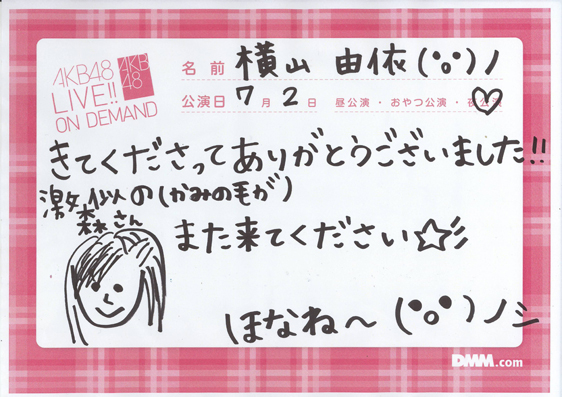 AKB48
LIVE!!
ON DEMAND
AKB
48
名前 横山 由依(°o°)ノ
公演日 7月2日 昼公演・おやつ公演・夜公演
きてくださってありがとうございました!!
激似の(かみの毛が)
森さん
また来てください☆彡
ほなね〜 (°o°)ノシ
DMM.com